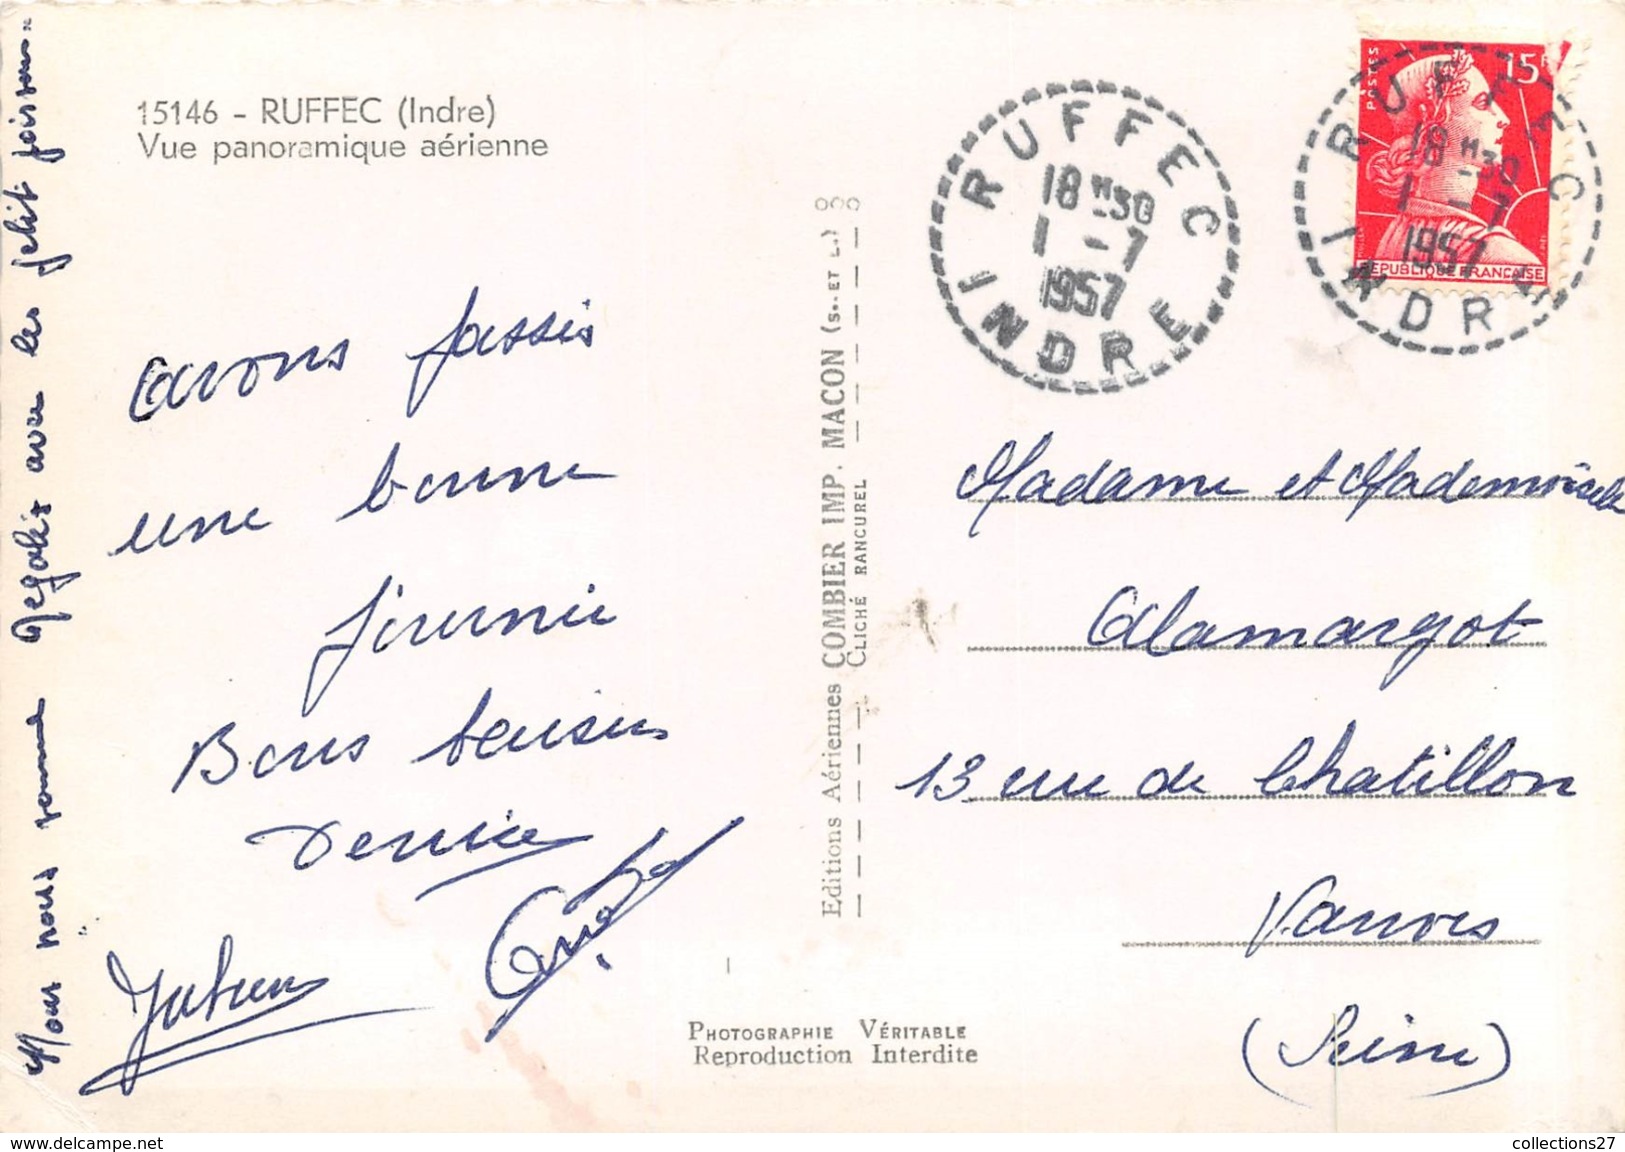 15146 - RUFFEC (Indre)
Vue panoramique aérienne
avons passés
une bonne
journée
Bons baisers
Denise
Nous nous sommes régalés avec les petit poissons.
Editions Aériennes COMBIER IMP. MACON (S. ET L.)
CLICHÉ RANCUREL
PHOTOGRAPHIE VÉRITABLE
Reproduction Interdite
RUFFEC
18 H 30
1 - 7
1957
INDRE
POSTES
15F
REPUBLIQUE FRANÇAISE
RUFFEC
18 H 30
1 - 7
1957
INDRE
Madame et Mademoiselle
Alamargot
13 rue de Chatillon
Vanves
(Seine)
www.delcampe.net
collections27